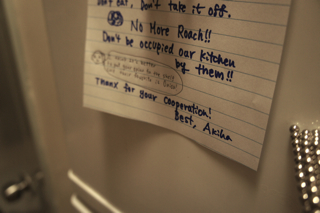 Don't eat, Don't take it off.
No More Roach!!
Don't be occupied our kitchen
by them!!
Thanx for your cooperation!
Best, Akiha